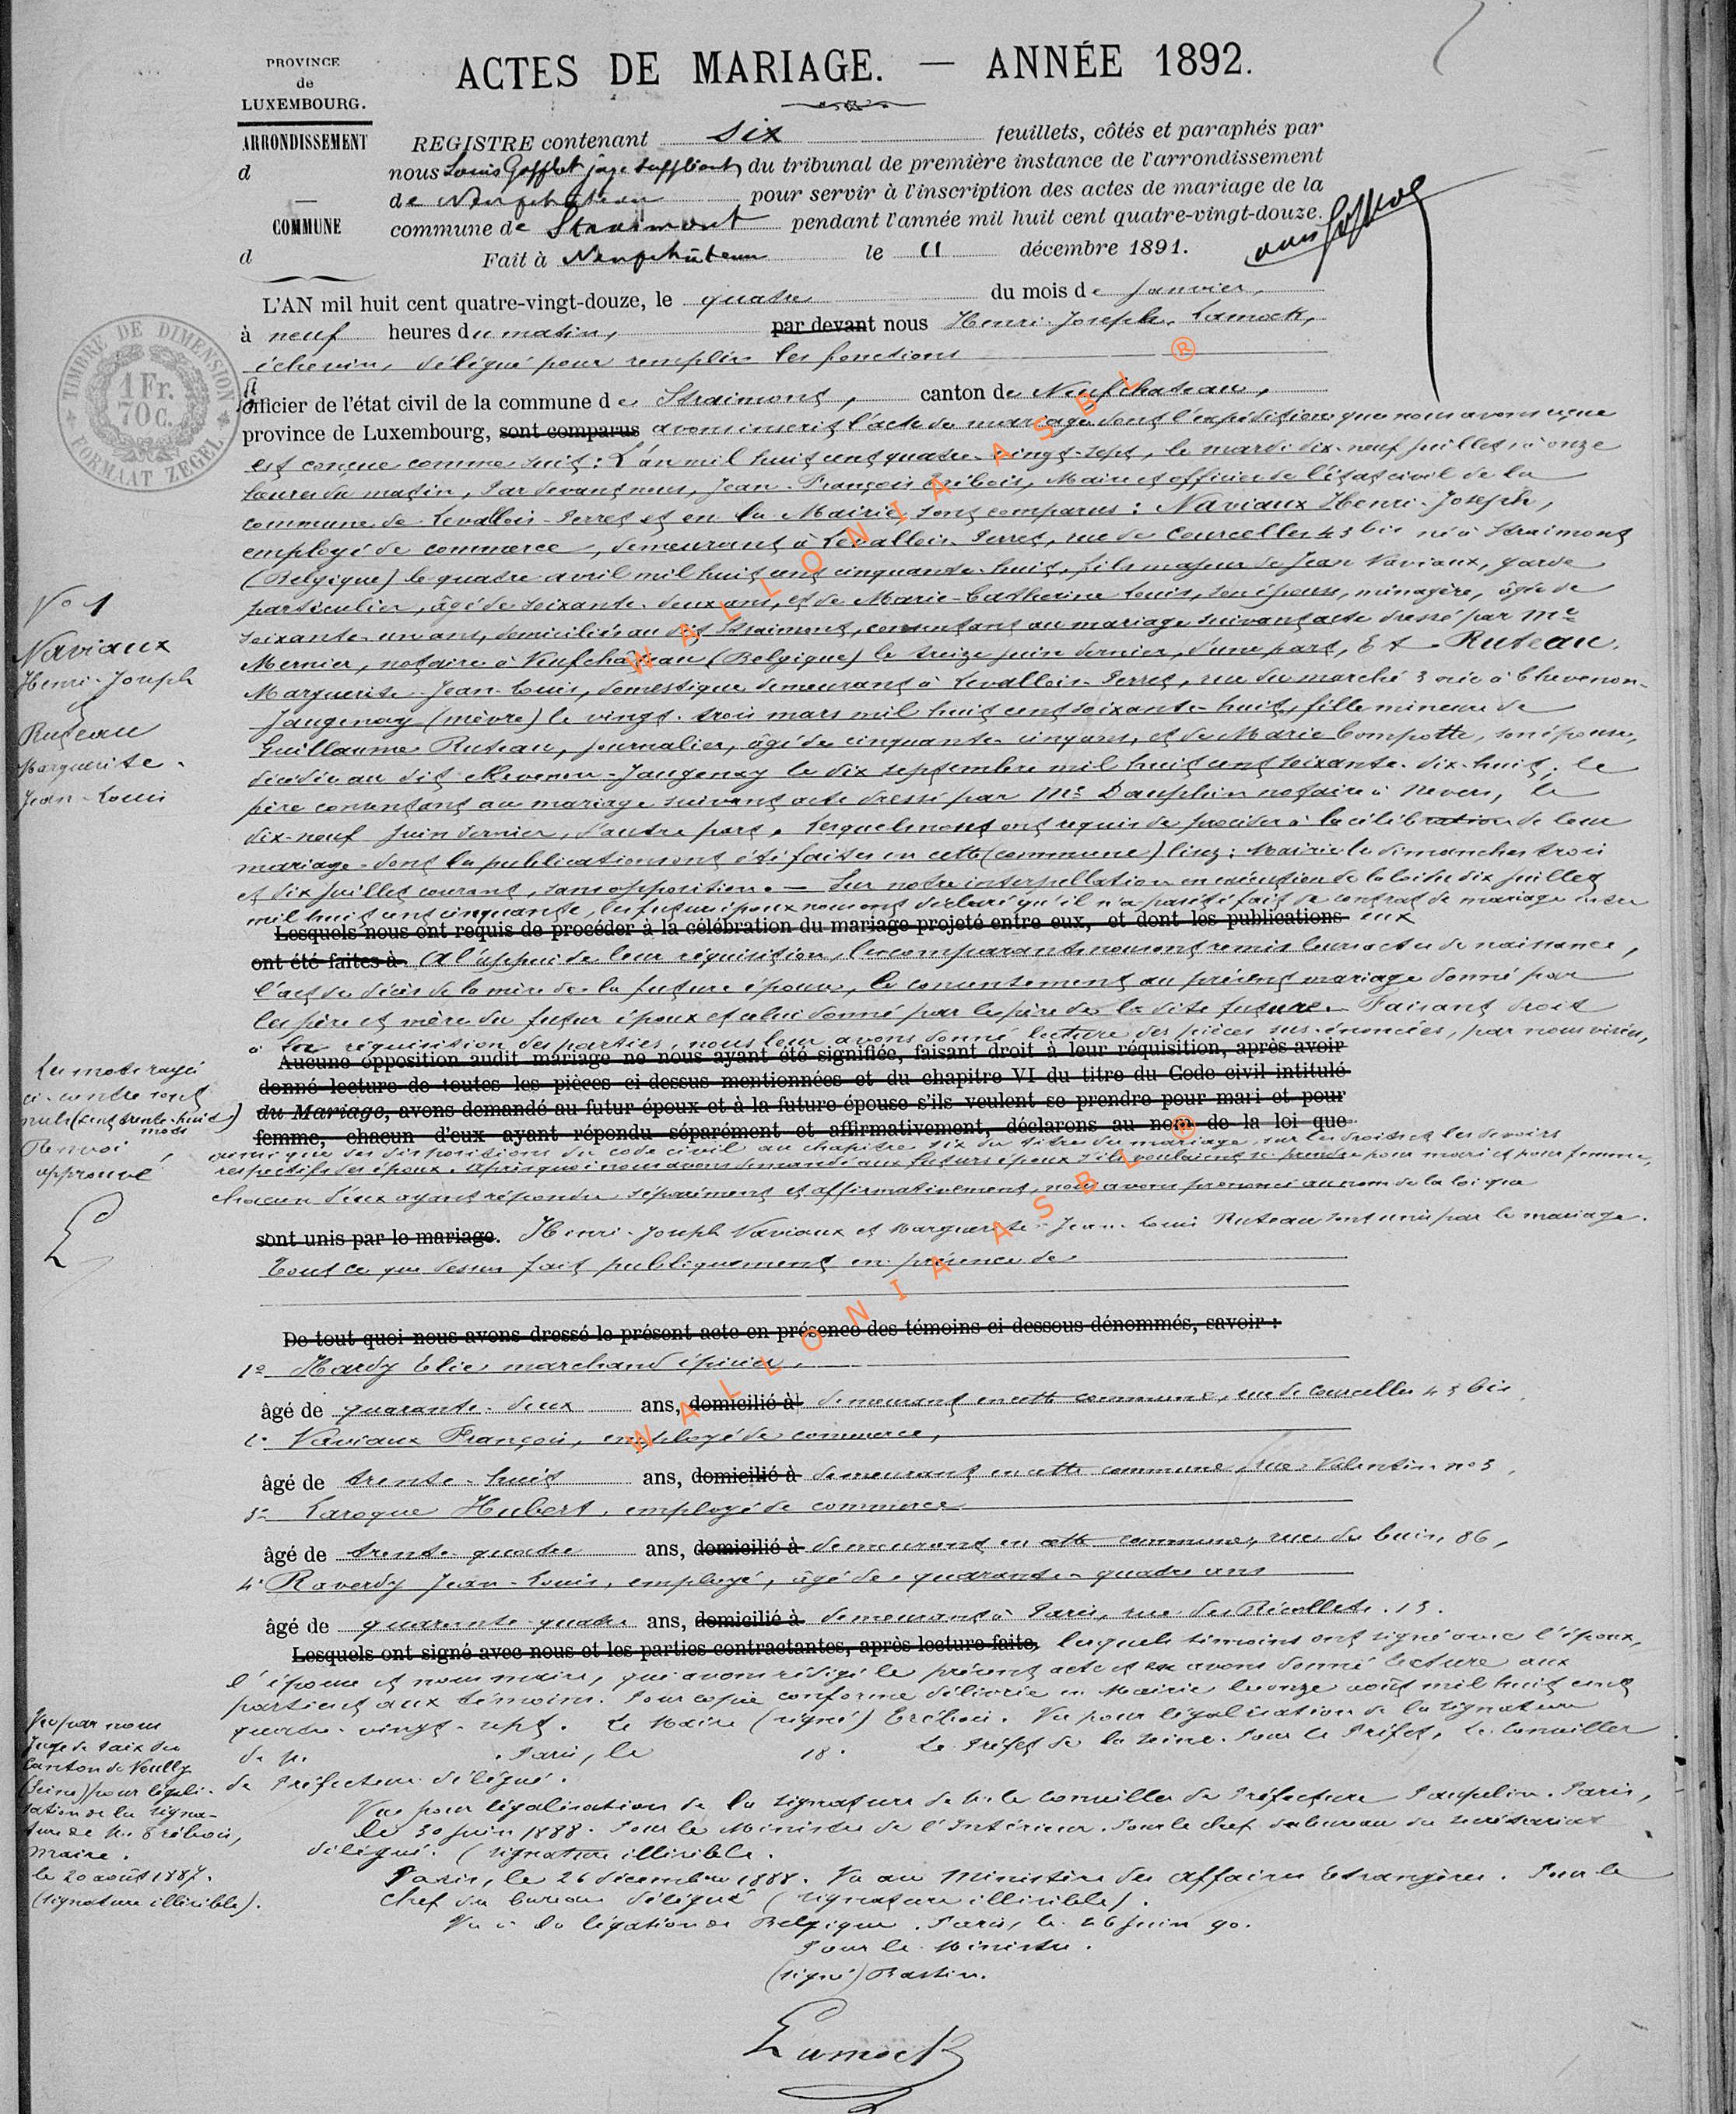 PROVINCE
de
LUXEMBOURG.
ARRONDISSEMENT
d
COMMUNE
d
ACTES DE MARIAGE. — ANNÉE 1892.
REGISTRE contenant six feuillets, côtés et paraphés par
nous Louis juge suppléant du tribunal de première instance de l'arrondissement
de Neufchâteau pour servir à l'inscription des actes de mariage de la
commune de Straimont pendant l'année mil huit cent quatre-vingt-douze.
Fait à Neufchâteau le 11 décembre 1891.
TIMBRE DE DIMENSION
1 Fr.
70 C.
FORMAAT ZEGEL
L'AN mil huit cent quatre-vingt-douze, le quatre du mois de Janvier,
à neuf heures du matin, par devant nous Henri-Joseph Lamock,
échevin, délégué pour remplir les fonctions
d'officier de l'état civil de la commune de Straimont, canton de Neufchateau,
province de Luxembourg, sont comparus avons inscrit l'acte de mariage dont l'expédition que nous avons reçue
est conçue comme suit : L'an mil huit cent quatre-vingt-sept, le mardi dix-neuf juillet à onze
heures du matin, Par devant nous, Jean-François Trébois, Maire et officier de l'état civil de la
commune de Levallois-Perret et en la Mairie, sont comparus : Naviaux Henri-Joseph,
employé de commerce, demeurant à Levallois-Perret, rue de Courcelles 43 bis né à Straimont
(Belgique) le quatre avril mil huit cent cinquante-huit, fils majeur de Jean Naviaux, garde
particulier, âgé de soixante-deux ans, et de Marie-Catherine Louis, son épouse, ménagère, âgée de
soixante-un ans, domiciliés au dit Straimont, consentant au mariage suivant acte dressé par Me
Mernier, notaire à Neufchâteau (Belgique) le treize juin dernier, d'une part, Et Ruteau
Marguerite-Jean-Louis, domestique demeurant à Levallois-Perret, rue du marché 3 née à Chevenon-
Jaugenay (nièvre) le vingt-trois mars mil huit cent soixante-huit, fille mineure de
Guillaume Ruteau, journalier, âgé de cinquante-cinq ans, et de Marie Compotte, son épouse,
décédée au dit Chevenon-Jaugenay le dix septembre mil huit cent soixante-dix-huit, le
père consentant au mariage suivant acte dressé par Me Dauphin notaire à Nevers, le
dix-neuf juin dernier, d'autre part. Lesquels nous ont requis de procéder à la célébration de leur
mariage dont les publications ont été faites en cette (commune) lisez : Mairie les dimanches trois
et dix juillet courant, sans opposition. — Sur notre interpellation en exécution de la loi du dix juillet
mil huit cent cinquante, les futurs époux nous ont déclaré qu'il n'a pas été fait de contrat de mariage entre
Lesquels nous ont requis de procéder à la célébration du mariage projeté entre eux, et dont les publications eux
ont été faites à A l'appui de leur réquisition, les comparants nous ont remis leurs actes de naissance,
l'acte de décès de la mère de la future épouse, le consentement au présent mariage donné par
les père et mère du futur époux et celui donné par le père de la dite future. Faisant droit
à la réquisition des parties, nous leur avons donné lecture des pièces sus-énoncées, par nous visées,
Aucune opposition audit mariage ne nous ayant été signifiée, faisant droit à leur réquisition, après avoir
donné lecture de toutes les pièces ci-dessus mentionnées et du chapitre VI du titre du Code civil intitulé
du Mariage, avons demandé au futur époux et à la future épouse s'ils veulent se prendre pour mari et pour
femme, chacun d'eux ayant répondu séparément et affirmativement, déclarons au nom de la loi que
ainsi que des dispositions du code civil au chapitre six du titre du mariage, sur les droits et les devoirs
respectifs des époux. Après quoi nous avons demandé aux futurs époux s'ils voulaient se prendre pour mari et pour femme,
chacun d'eux ayant répondu séparément et affirmativement, nous avons prononcé au nom de la loi que
sont unis par le mariage. Henri-Joseph Naviaux et Marguerite-Jean-Louis Ruteau sont unis par le mariage.
Tout ce que dessus fait publiquement en présence de
De tout quoi nous avons dressé le présent acte en présence des témoins ci-dessous dénommés, savoir :
1° Hardy Elie, marchand épicier,
âgé de quarante-deux ans, domicilié à demeurant en cette commune, rue de Courcelles 43 bis,
2° Naviaux François, employé de commerce,
âgé de trente-huit ans, domicilié à demeurant en cette commune, rue Valentin n° 3,
3° Laroque Hubert, employé de commerce
âgé de trente-quatre ans, domicilié à demeurant en cette commune, rue du bois, 86,
4° Raverdy Jean-Louis, employé, âgé de quarante-quatre ans
âgé de quarante-quatre ans, domicilié à demeurant à Paris, rue des Récollets. 13.
Lesquels ont signé avec nous et les parties contractantes, après lecture faite, lesquels témoins ont signé avec l'époux,
l'épouse et nous maire, qui avons rédigé le présent acte et en avons donné lecture aux
parties et aux témoins. Pour copie conforme délivrée en Mairie le onze août mil huit cent
quatre-vingt-sept. Le Maire (signé) Trébois. Vu pour légalisation de la signature
de M. Paris, le 18 . Le Préfet de la Seine. Pour le Préfet, Le Conseiller
de Préfecture délégué.
Vu pour légalisation de la signature de M. le Conseiller de Préfecture Paris,
le 30 juin 1888. Pour le Ministre de l'Intérieur. Pour le chef du bureau du secrétariat
délégué. (signature illisible.
Paris, le 26 décembre 1888. Vu au Ministère des Affaires Etrangères. Pour le
Chef du bureau délégué (signature illisible).
Vu à la légation de Belgique. Paris, le 26 juin 90.
Pour le Ministre.
(signé) Bastin.
Lamock
N° 1
Naviaux
Henri-Joseph
&
Ruteau
Marguerite-
Jean-Louis
Les mots rayés
ci-contre sont
nuls (cent trente-huit)
mots
Renvoi
approuvé
L
Vu par nous
Juge de Paix du
Canton de Neuilly
(Seine) pour légali-
sation de la signa-
ture de M. Trébois,
maire.
le 20 août 1887.
(signature illisible).
WALLONIA ASBL ®
WALLONIA ASBL ®